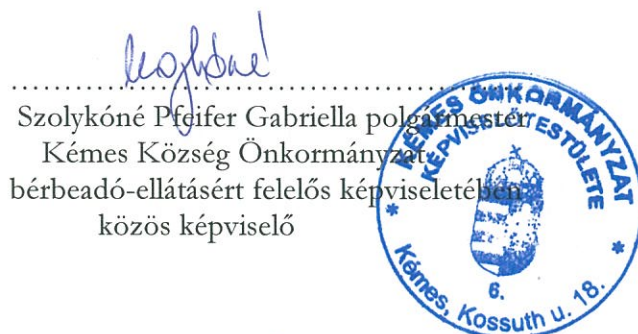 Szolykóné Pfeifer Gabriella polgármester
Kémes Község Önkormányzat
bérbeadó-ellátásért felelős képviseletében
közös képviselő
KÉMES ÖNKORMÁNYZAT
KÉPVISELŐTESTÜLETE
6.
Kémes, Kossuth u. 18.